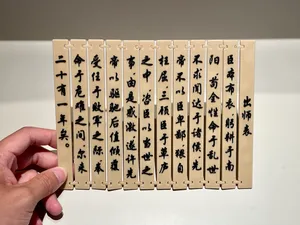 出师表
臣本布衣，躬耕于南
阳，苟全性命于乱世，
不求闻达于诸侯。先
帝不以臣卑鄙，猥自
枉屈，三顾臣于草庐
之中，咨臣以当世之
事，由是感激，遂许先
帝以驱驰。后值倾覆，
受任于败军之际，奉
命于危难之间，尔来
二十有一年矣。